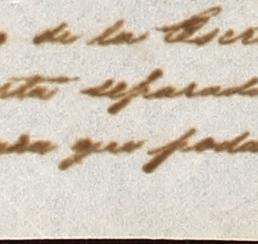 de la Escri
separada
que poda